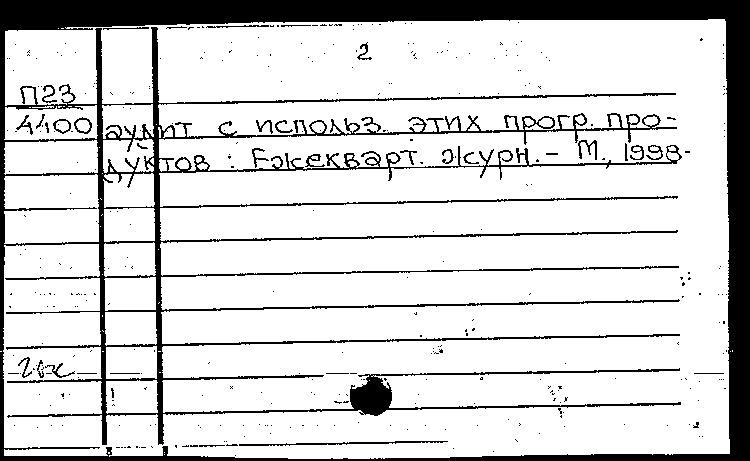 2
П23
4400
аудит с использ. этих прогр. про-
дуктов : Ежекварт. журн. – М., 1998-